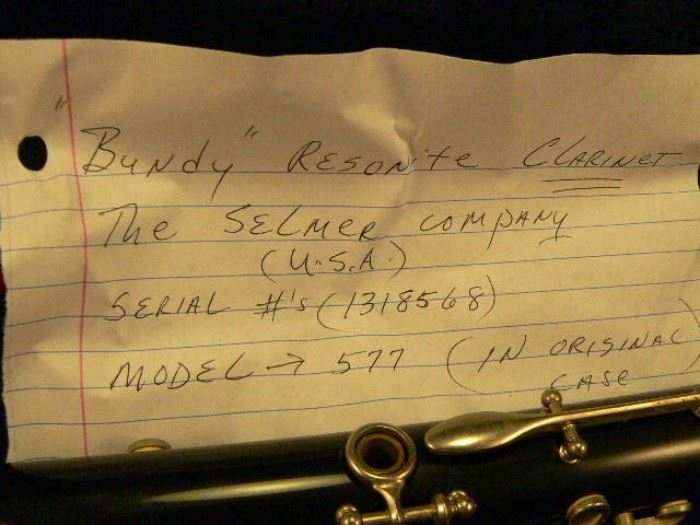 "Bundy" Resonite Clarinet
The Selmer Company
(U.S.A.)
Serial #'s (1318568)
Model → 577 (In original
case